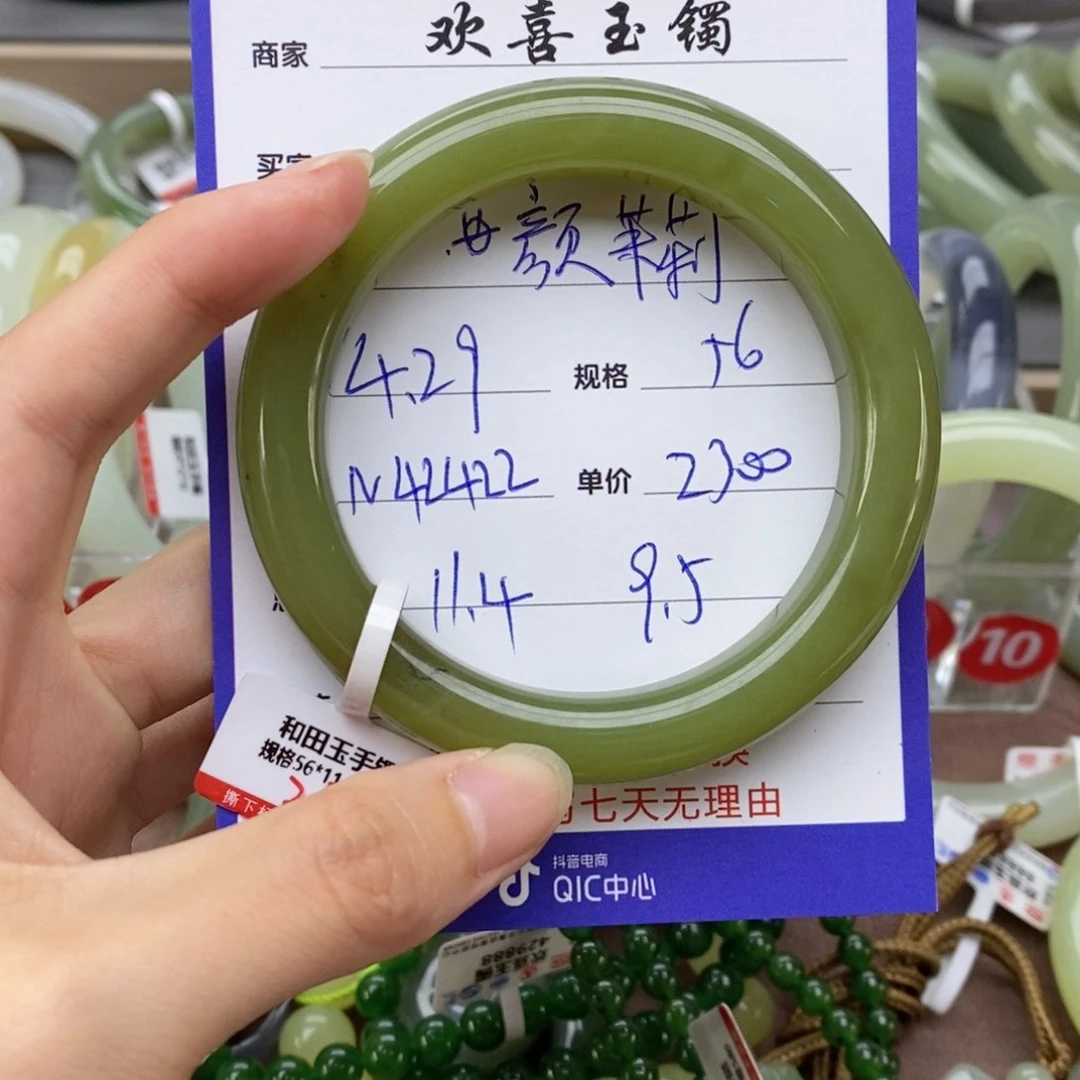 商家 欢喜玉镯
买家
颜茉莉
4.29 规格 56
N42422 单价 2300
11.4 9.5
和田玉手镯
规格56*11
撕下
七天无理由
抖音电商
QIC中心
10